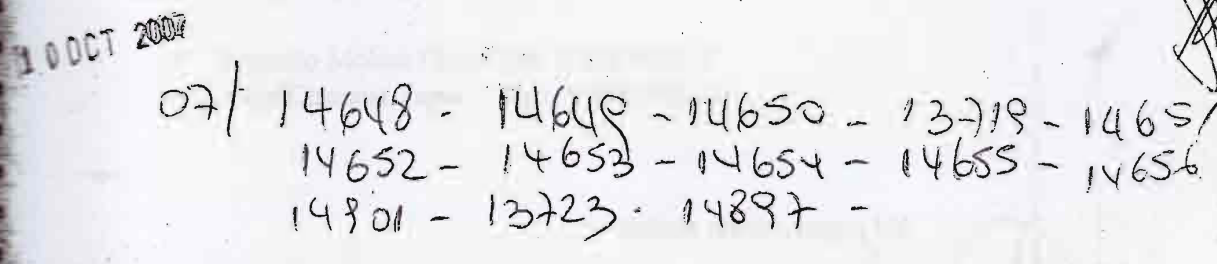 10 OCT 2007
07/ 14648 - 14649 - 14650 - 13719 - 14651
14652 - 14653 - 14654 - 14655 - 14656
14901 - 13723 - 14897 -